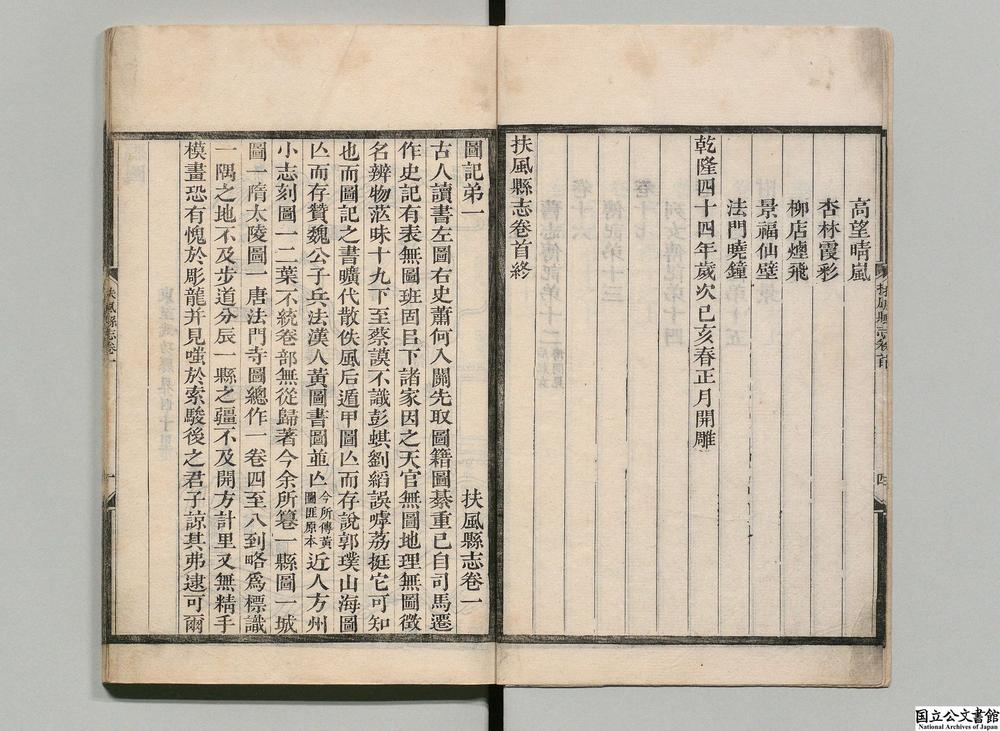 高望晴嵐
杏林霞彩
柳店煙飛
景福仙壁
法門曉鐘
乾隆四十四年歲次己亥春正月開雕
扶風縣志卷首終
扶風縣志卷首
四
圖記弟一 扶風縣志卷一
古人讀書左圖右史蕭何入關先取圖籍圖綦重已自司馬遷
作史記有表無圖班固㠯下諸家因之天官無圖地理無圖徵
名辨物茫昧十九下至蔡謨不識彭蜞劉縚誤嘑荔挺它可知
也而圖記之書曠代散佚風后遁甲圖亾而存說郭璞山海圖
亾而存贊魏公子兵法漢人黃圖書圖並亾今所傳黃圖匪原本近人方州
小志刻圖一二葉不統卷部無從歸著今余所籑一縣圖一城
圖一隋太陵圖一唐法門寺圖總作一卷四至八到略爲標識
一隅之地不及步道分辰一縣之疆不及開方計里又無精手
模畫恐有愧於彫龍并見嗤於索駿後之君子諒其弗逮可爾
扶風縣志卷一
一
国立公文書館
National Archives of Japan